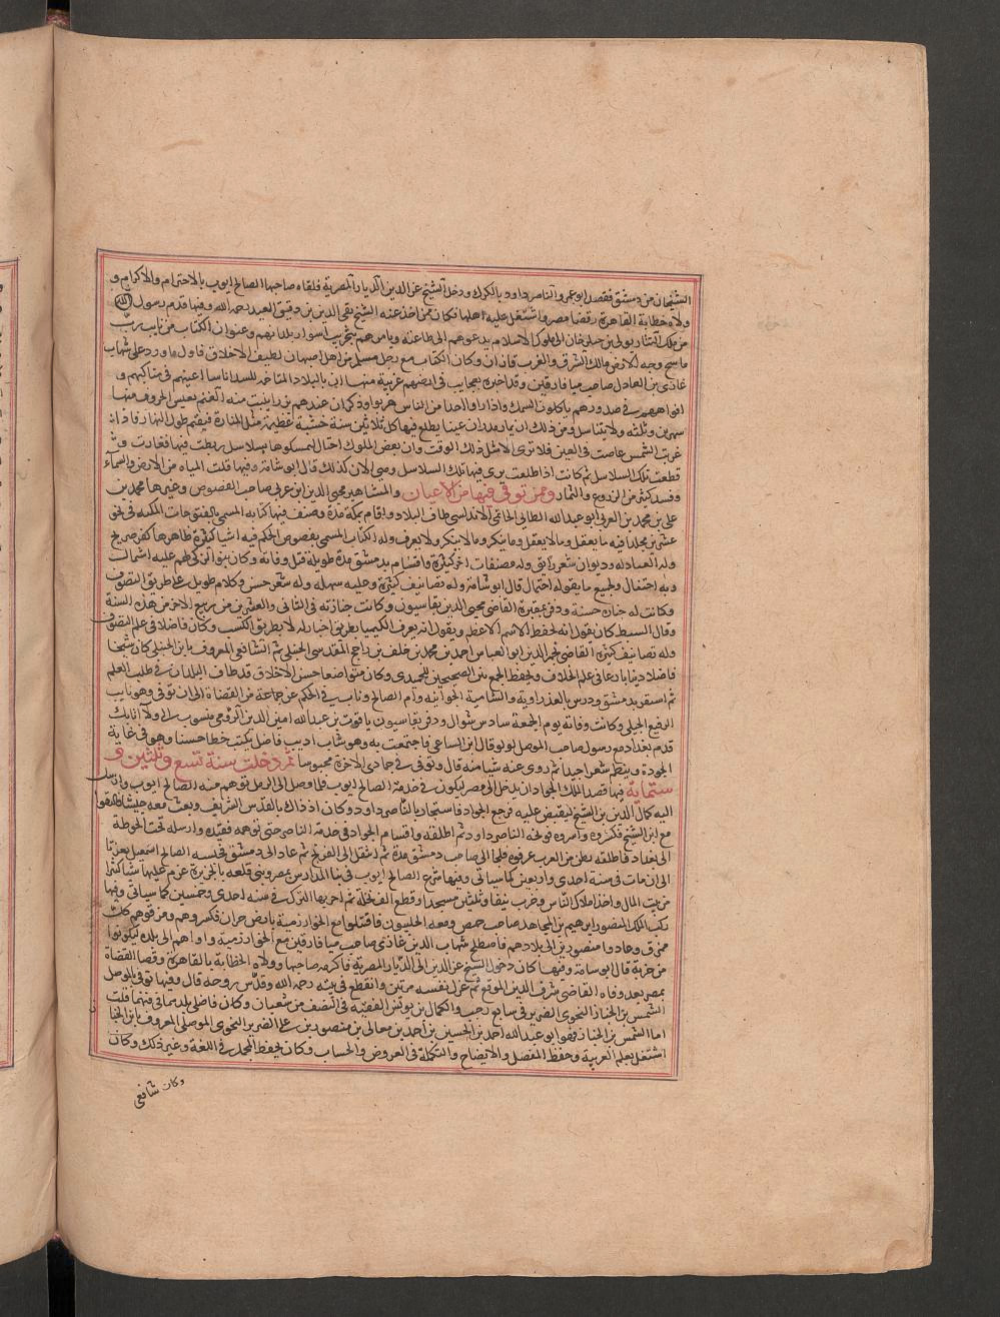 الشيخان من دمشق فقصد ابو عمرو الناصر داود بالكرك ودخل الشيخ عز الدين الديار المصرية فتلقاه صاحبها الصالح ايوب بالاحترام والاكرام و
ولاه خطابة القاهرة وقضا مصر واشتغل عليه اهلها فكان ممن اخذ عنه الشيخ تقي الدين بن دقيق العيد رحمه الله وفيها قدم رسول
من ملك التتار تولى بن جنكز خان الى ملوك الاسلام يدعوهم الى طاعته ويامرهم بتخريب اسوار بلدانهم وعنوان الكتاب من نايب رب
ماسح وجه الارض مالك الشرق والغرب قاان وكان الكتاب مع رجل مسلم من اهل اصبهان لطيف الاخلاق فاول ما ورد على شهاب
غازي بن العادل صاحب ميافارقين وقد اخبره بعجايب في ارضهم غريبة منها ان بالبلاد المتاخمة للسد اناسا اعينهم في مناكبهم و
افواههم في صدورهم ياكلون السمك واذا راوا احدا من الناس هربوا وذكر ان عندهم بزر ينبت منه الغنم يعيش الخروف منها
شهرين وثلثة ولا يتناسل ومن ذلك ان بمازندران عينا يطلع فيها كل ثلاثين سنة خشبة عظيمة مثل المنارة فيقيم طول النهار فاذا
غربت الشمس غاصت في العين فلا ترى الا مثل ذلك الوقت وان بعض الملوك احتال ليمسكها بسلاسل ربطت فيها فغارت و
قطعت تلك السلاسل ثم كانت اذا طلعت يرى فيها تلك السلاسل وهي الى الان كذلك قال ابو شامة وفيها قلت المياه من الارض والسماء
وفسد كثير من الزروع والثمار وممن توفي فيها من الاعيان والمشاهير محيي الدين ابن عربي صاحب الفصوص وغيرها محمد بن
علي بن محمد بن العربي ابو عبد الله الطائي الحاتمي الاندلسي طاف البلاد واقام بمكة مدة وصنف فيها كتابه المسمى بالفتوحات المكية في نحو
عشرين مجلدا فيه ما يعقل وما لا يعقل وما ينكر وما لا ينكر ولا يعرف وله الكتاب المسمى بفصوص الحكم فيه اشيا كثيرة ظاهرها كفر صريح
وله العبادلة وديوان شعر رائق وله مصنفات اخر كثيرة واقام بدمشق مدة طويلة قبل وفاته وكان بنو الزكي لهم عليه اشتمال
وبه احتفال ولجميع ما يقوله احتمال قال ابو شامة وله تصانيف كثيرة وعليه سهله وله شعر حسن وكلام طويل على طريق التصوف
وكانت له جنازة حسنة ودفن بمقبرة القاضي محيي الدين بقاسيون وكانت جنازته في الثاني والعشرين من ربيع الاخر من هذه السنة
وقال السبط كان يقول انه يحفظ الاسم الاعظم ويقول انه يعرف الكيميا بطريق المنازلة لا بطريق الكسب وكان فاضلا في علم التصوف
وله تصانيف كثيرة القاضي نجم الدين ابو العباس احمد بن محمد بن خلف بن راجح المقدسي الحنبلي ثم الشافعي المعروف بابن الحنبلي كان شيخا
فاضلا دينا بارعا في علم الخلاف ويحفظ الجمع بين الصحيحين للحميدي وكان متواضعا حسن الاخلاق قد طاف البلدان في طلب العلم
ثم استقر بدمشق ودرس بالعذراوية والشامية الجوانيه وام الصالح وناب في الحكم عن جماعة من القضاة الى ان توفي وهو نايب
الرفيع الجيلي وكانت وفاته يوم الجمعة سادس شوال ودفن بقاسيون ياقوت بن عبد الله امين الدين الرومي منسوب الى ولاء اتابك
قدم بغداد مع رسول صاحب الموصل لولو قال ابن الساعي فاجتمعت به وهو شاب اديب فاضل يكتب خطا حسنا وهو في غاية
الجودة وينظم شعرا جيدا ثم روى عنه شيا منه قال وتوفي في جمادى الاخرة محبوسا ثم دخلت سنة تسع وثلثين و
ستماية فيها قصد الملك الجواد ان يدخل الى مصر ليكون في خدمة الصالح ايوب فلما وصل الى الرمل توهم منه الصالح ايوب وارسل
اليه كمال الدين بن الشيخ ليقبض عليه فرجع الجواد فاستجار بالناصر داود وكان اذ ذاك بالقدس الشريف وبعث معه جيشا فالتقوا
مع ابن الشيخ فكسروه واسروه فوبخه الناصر داود ثم اطلقه واقام الجواد في خدمة الناصر حتى توهم منه فقيده وارسله تحت الحوطة
الى بغداد فاطلقه بطن من العرب عرفوه فلجا الى صاحب دمشق مدة ثم انتقل الى الفرنج ثم عاد الى دمشق فحبسه الصالح اسمعيل بعزتا
الى ان مات في سنة احدى واربعين كما سياتي وفيها شرع الصالح ايوب في بنا المدارس بمصر وبنى قلعه بالجزيرة غرم عليها شيا كثيرا
من بيت المال واخذ املاك الناس وخرب نيفا وثلثين مسجدا وقطع الف نخلة ثم اخربها الترك في سنة احدى وخمسين كما سياتي وفيها
ركب الملك المنصور ابرهيم بن المجاهد صاحب حمص ومعه الحلبيون فاقتتلوا مع الخوارزمية بارض حران فكسروهم ومزقوهم كل
ممزق وعادوا منصورين الى بلادهم فاصطلح شهاب الدين غازي صاحب ميافارقين مع الخوارزمية واواهم الى بلده ليكونوا
من حزبه قال ابو شامة وفيها كان دخول الشيخ عز الدين الى الديار المصرية فاكرمه صاحبها وولاه الخطابة بالقاهرة وقضا القضاة
بمصر بعد وفاه القاضي شرف الدين الموقع ثم عزل نفسه مرتين وانقطع في بيته رحمه الله وقدس روحه قال وفيها توفي بالموصل
الشمس بن الخباز النحوي الضرير في سابع رجب والكمال بن يونس الفقيه في النصف من شعبان وكان فاضلي بلدهما في فنهما قلت
اما الشمس بن الخباز فهو ابو عبد الله احمد بن الحسين بن احمد بن معالي بن منصور بن علي الضرير النحوي الموصلي المعروف بابن الخباز
اشتغل بعلم العربية وحفظ المفصل والايضاح والتكملة في العروض والحساب وكان يحفظ المجمل في اللغة وغير ذلك وكان
وكان شافعي